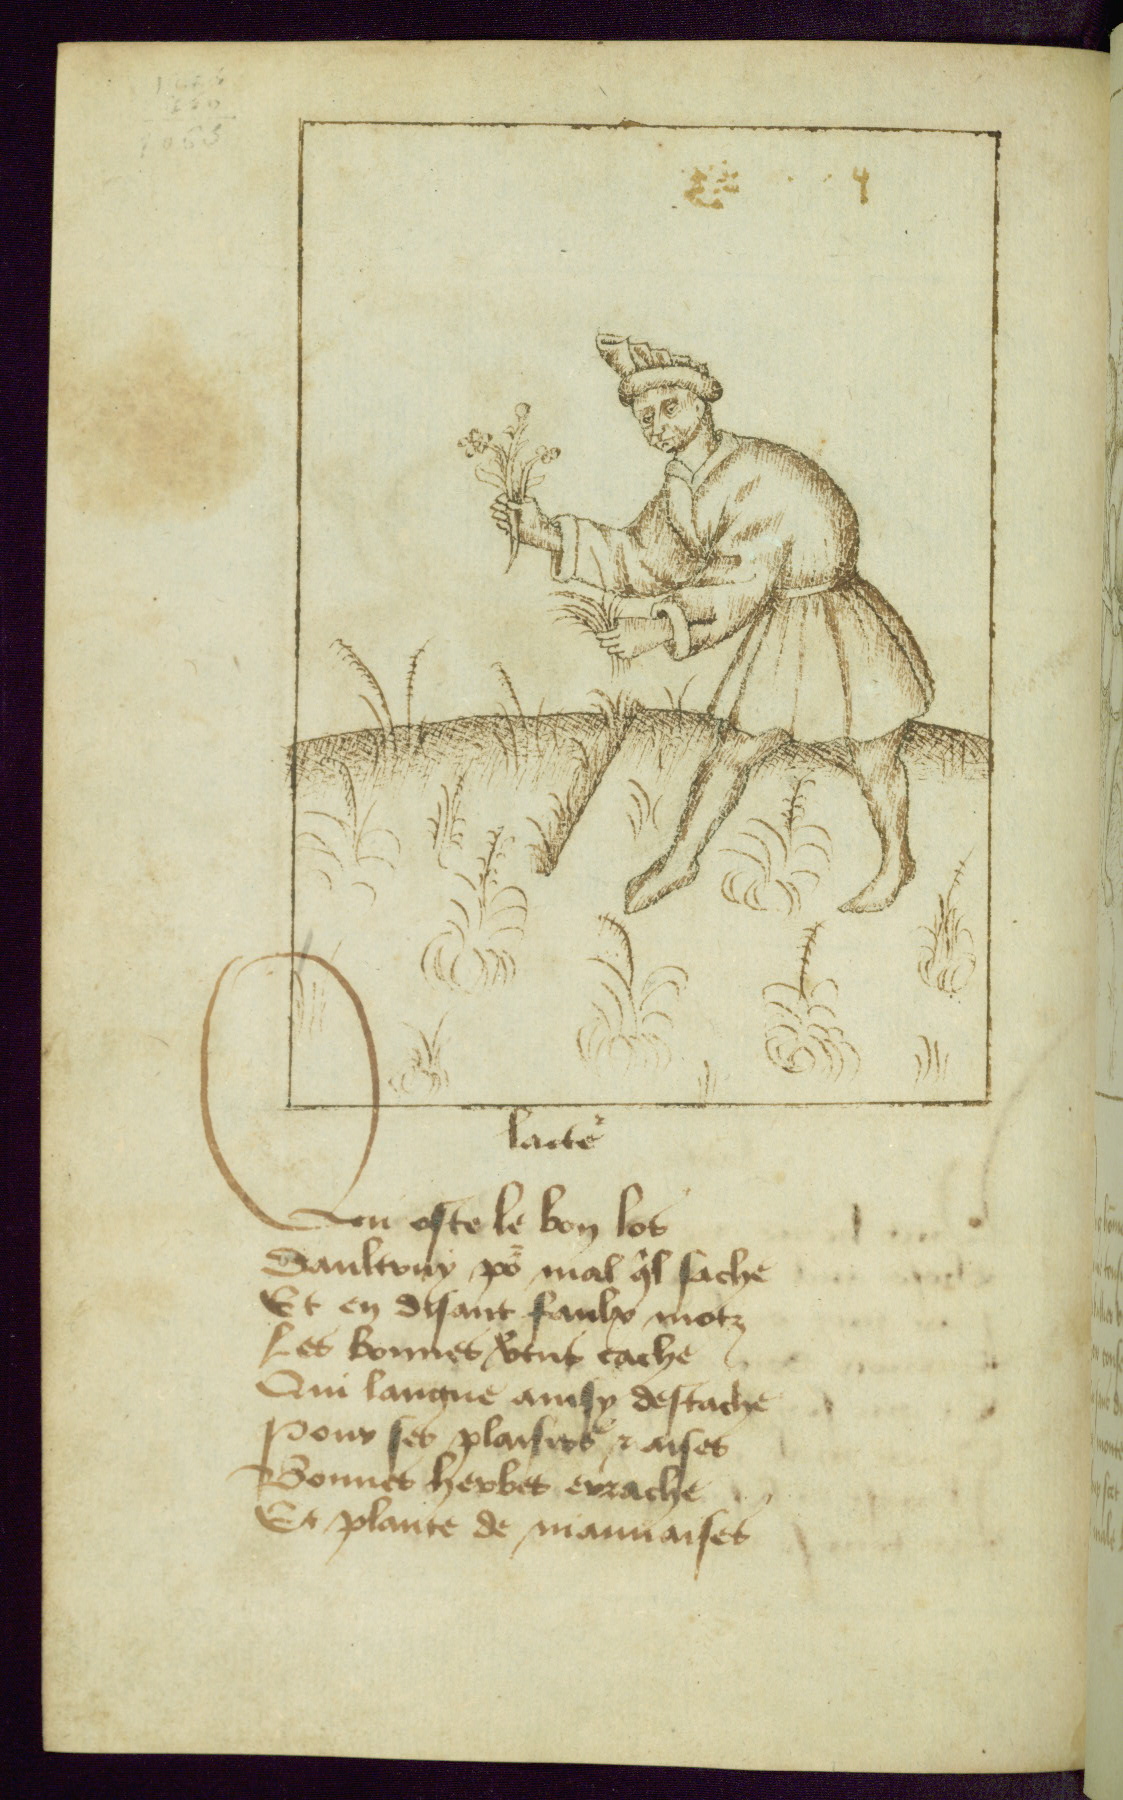 lacteˀ
Qui oste le bon los
Daultruy põ mal q̃l sache
Et en disant faulx motz
Les bonnes v̾tus cache
Qui langue ainsy destache
Pour ses plaisirs ⁊ aises
Bonnes herbes erache
Et plante de mauuaises